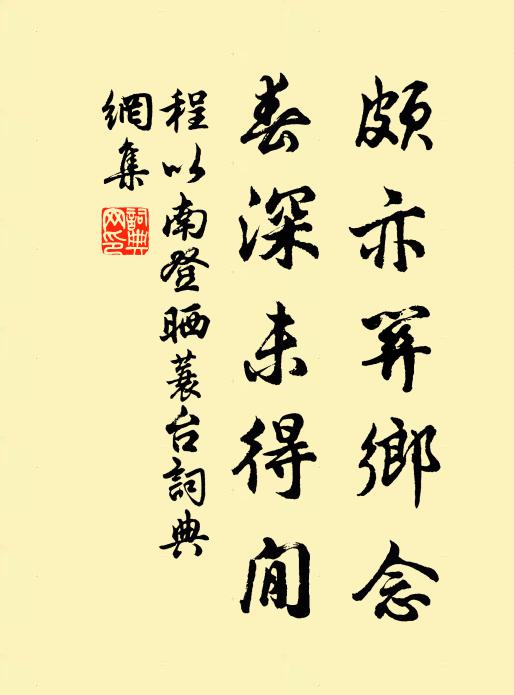 頗亦關鄉念
春深未得閒
程以南登晒蓑台詞典
網集
詞典
网印